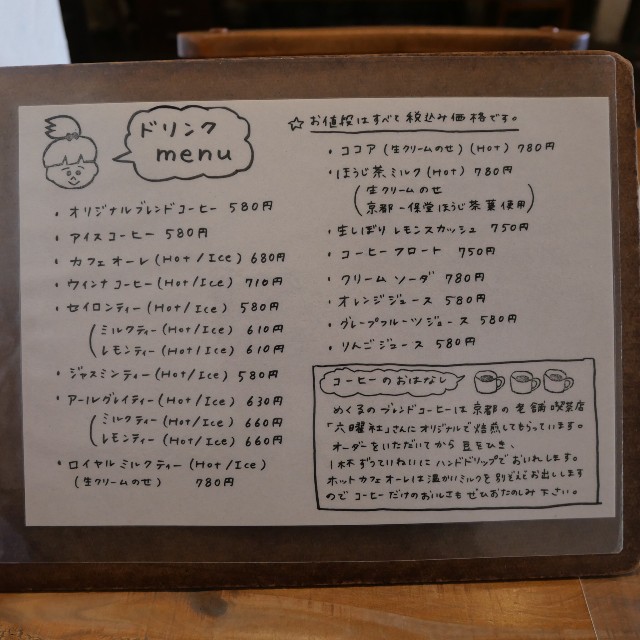 ドリンク
menu
・オリジナルブレンドコーヒー 580円
・アイスコーヒー 580円
・カフェオーレ(Hot/Ice) 680円
・ウィンナコーヒー(Hot/Ice) 710円
・セイロンティー(Hot/Ice) 580円
(ミルクティー(Hot/Ice) 610円
レモンティー(Hot/Ice) 610円
・ジャスミンティー(Hot/Ice) 580円
・アールグレイティー(Hot/Ice) 630円
(ミルクティー(Hot/Ice) 660円
レモンティー(Hot/Ice) 660円
・ロイヤルミルクティー(Hot/Ice)
(生クリームのせ) 780円
☆お値段はすべて税込み価格です。
・ココア(生クリームのせ)(Hot) 780円
・ほうじ茶ミルク(Hot) 780円
(生クリームのせ
京都一保堂ほうじ茶葉使用)
・生しぼりレモンスカッシュ 750円
・コーヒーフロート 750円
・クリームソーダ 780円
・オレンジジュース 580円
・グレープフルーツジュース 580円
・りんごジュース 580円
コーヒーのおはなし
めくるのブレンドコーヒーは京都の老舗喫茶店
「六曜社」さんにオリジナルで焙煎してもらっています。
オーダーをいただいてから豆をひき、
1杯ずつていねいにハンドドリップでおいれします。
ホットカフェオーレは温かいミルクを別ぞえでお出しします
のでコーヒーだけのおいしさもぜひおたのしみ下さい。